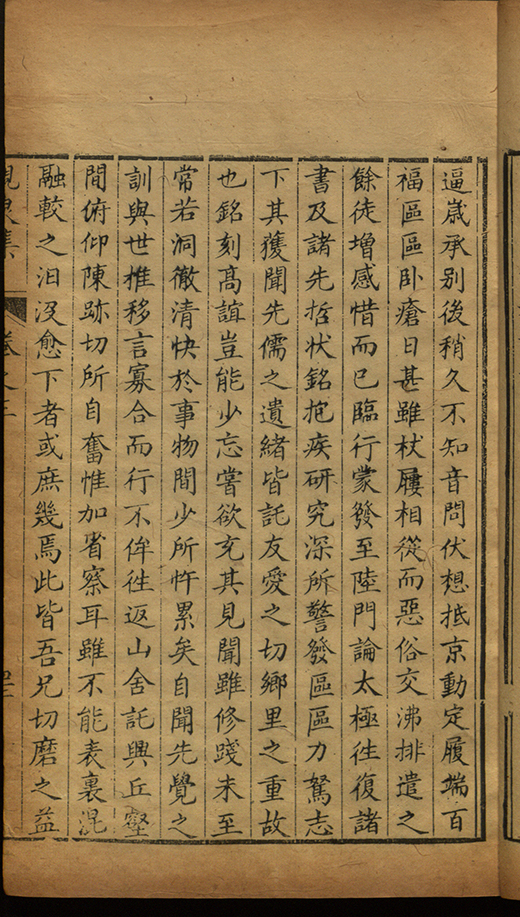 逼歲承别後稍久不知音問伏想抵京動定履端百
福區區卧瘡日甚雖杖屨相從而惡俗交沸排遣之
餘徒增感惜而已臨行蒙發至陸門論太極徃復諸
書及諸先哲狀銘抱疾研究深所警發區區力駑志
下其獲聞先儒之遺緒皆託友愛之切鄉里之重故
也銘刻髙誼豈能少忘嘗欲充其見聞雖修踐未至
常若洞徹清快於事物間少所忤累矣自聞先覺之
訓與世推移言寡合而行不侔徃返山舍託興丘壑
間俯仰陳跡切所自奮惟加省察耳雖不能表裏混
融較之汨没愈下者或庶幾焉此皆吾兄切磨之益
峴泉集 卷之三